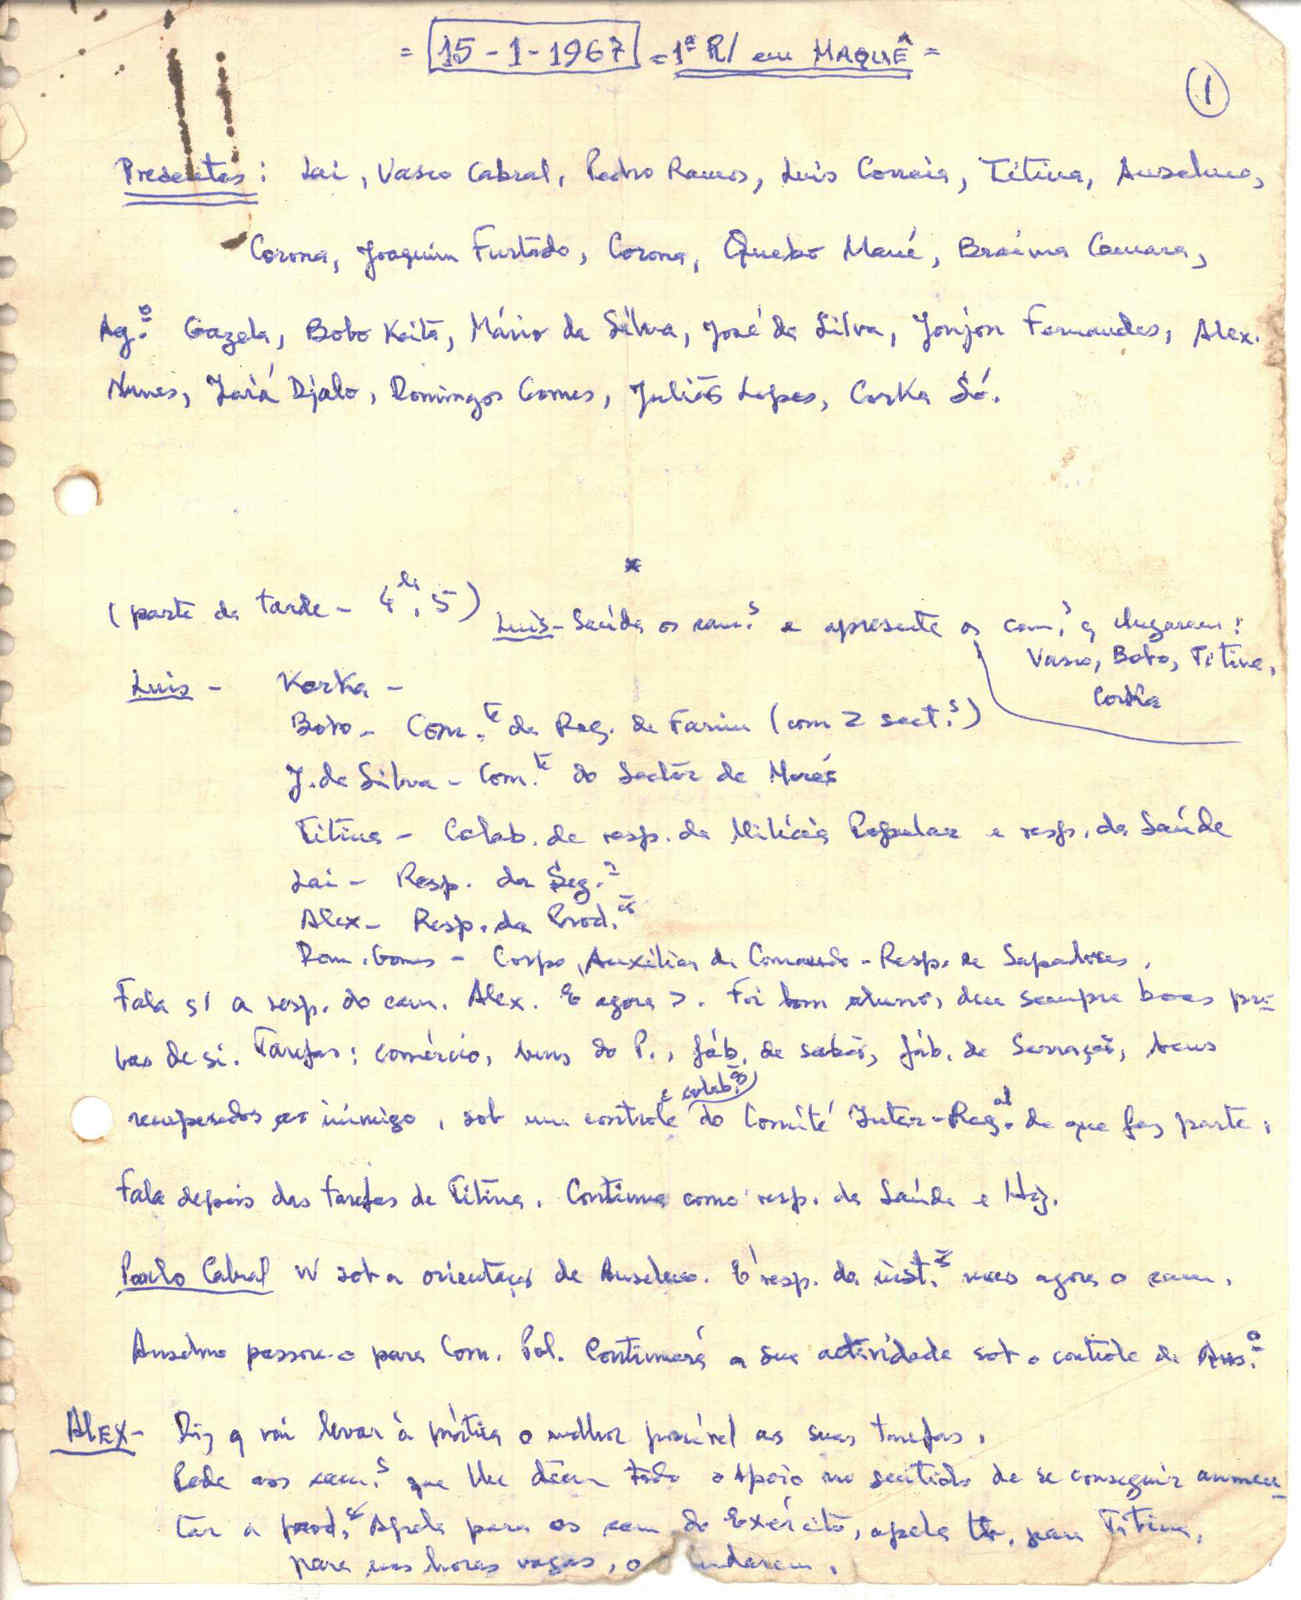 = 15-1-1967 = 1ª R/ em MAQUÊ =
1
Presentes: Lai, Vasco Cabral, Pedro Ramos, Luis Correia, Titina, Anselmo,
Corona, Joaquim Furtado, Corona, Quebo Mané, Braima Camara,
Ag.º Gazela, Bobo Keitá, Mário da Silva, José da Silva, Jonjon Fernandes, Alex.
Nunes, Iaiá Djalo, Domingos Gomes, Julião Lopes, Corka Só.
*
(parte da tarde - 4h,5) Luis - Saúda os cam.s e apresenta os cam.s q chegaram:
Vasco, Bobo, Titina,
Corka
Luis - Korka -
Bobo - Com.te da Reg. de Farim (com 2 sect.s)
J. da Silva - Com.te do Sector de Morés
Titina - Colab. de resp. da Milícia Popular e resp. da Saúde
Lai - Resp. da Seg.ª
Alex - Resp. da Prod.ão
Dom. Gomes - Corpo Auxiliar de Comando - Resp. de Sapadores.
Fala s/ a resp. do cam. Alex. E agora >. Foi bom aluno, deu sempre boas pro-
vas de si. Tarefas: comércio, bens do P., fáb. de sabão, fáb. de Serração, bens
e colab.ão
recuperados ao inimigo, sob um controle do Comité Inter-Reg.al de que faz parte.
Fala depois das tarefas de Titina. Continua como resp. da Saúde e Hig.
Paulo Cabral W sob a orientação de Anselmo. É resp. da inst.ão mas agora o cam.
Anselmo passou-o para Com. Pol. Continuará a sua actividade sob o controle de Ans.º
ALEX - Diz q vai levar à prática o melhor possível as suas tarefas.
Pede aos cam.s que lhe dêem todo o apoio no sentido de se conseguir aumen-
tar a prod.ão Apela para os cam do Exército, apela tb. para Titina,
para nas horas vagas, o